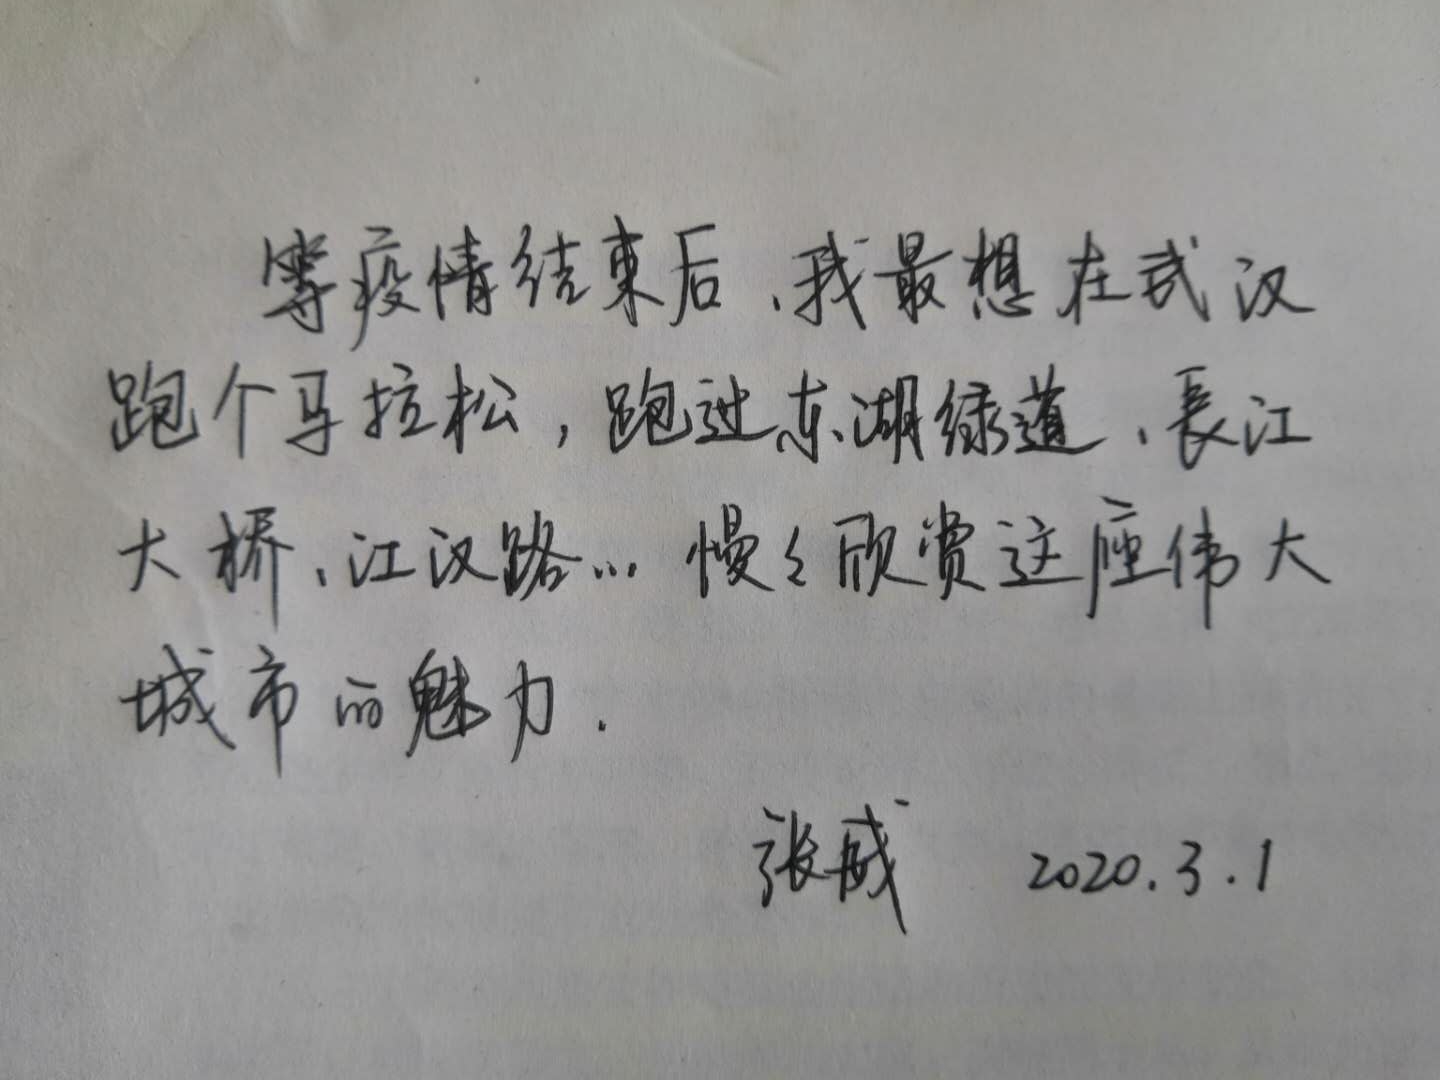 等疫情结束后、我最想在武汉
跑个马拉松，跑过东湖绿道、長江
大桥、江汉路… 慢々欣赏这座伟大
城市的魅力.
张威 2020.3.1